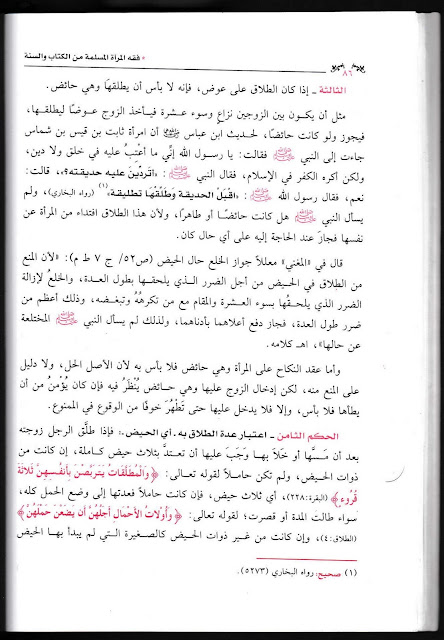 * فقه المرأة المسلمة من الكتاب والسنة
٨٦
الثالثة ـ إذا كان الطلاق على عوض، فإنه لا بأس أن يطلقها وهي حائض.
مثل أن يكون بين الزوجين نزاع وسوء عشرة فيأخذ الزوج عوضًا ليطلقها،
فيجوز ولو كانت حائضًا، لحديث ابن عباس أن امرأة ثابت بن قيس بن شماس
جاءت إلى النبي ﷺ فقالت: يا رسول الله إنِّي ما أعتبُ عليه في خلق ولا دين،
ولكن أكره الكفر في الإسلام، فقال النبي ﷺ: «أتردِّينَ عليه حديقته؟»، قالت:
نعم، فقال رسول الله ﷺ: «اقبَلْ الحديقة وطَلِّقْهَا تطليقة»(١) (رواه البخاري)، ولم
يسأل النبي ﷺ هل كانت حائضًا أو طاهرًا، ولأن هذا الطلاق افتداء من المرأة عن
نفسها فجازَ عند الحاجة إليه على أي حال كان.
قال في «المغني» معللاً جواز الخلع حال الحيض (ص٥٢/ ج ٧ ط م): «لأن المنع
من الطلاق في الحيض من أجل الضرر الذي يلحقها بطول العدة، والخلعُ لإزالة
الضرر الذي يلحقُها بسوء العشرة والمقام مع من تكرههُ وتبغضه، وذلك أعظم من
ضرر طول العدة، فجاز دفع أعلاهما بأدناهما، ولذلك لم يسأل النبي ﷺ المختلعة
عن حالها»، اهـ كلامه.
وأما عقد النكاح على المرأة وهي حائض فلا بأس به لأن الأصل الحل، ولا دليل
على المنع منه، لكن إدخال الزوج عليها وهي حائض يُنْظَرُ فيه فإن كان يُؤْمَنُ من أن
يطأها فلا بأس، وإلا فلا يدخل عليها حتى تَطْهُرَ خوفًا من الوقوع في الممنوع.
الحكم الثامن ـ اعتبار عدة الطلاق به ـ أي الحيض ـ: فإذا طلَّق الرجل زوجته
بعد أن مَسَّها أو خَلا بها وجَبَ عليها أن تعتدَّ بثلاث حيض كاملة، إن كانت من
ذوات الحيض، ولم تكن حاملاً لقوله تعالى: ﴿وَالْمُطَلَّقَاتُ يَتَرَبَّصْنَ بِأَنفُسِهِنَّ ثَلاثَةَ
قُرُوءٍ﴾ (البقرة:٢٢٨)، أي ثلاث حيض، فإن كانت حاملاً فعدتها إلى وضع الحمل كله،
سواء طالت المدة أو قصرت؛ لقوله تعالى: ﴿وَأُوْلاتُ الأَحْمَالِ أَجَلُهُنَّ أَن يَضَعْنَ حَمْلَهُنَّ﴾
(الطلاق:٤)، وإن كانت من غير ذوات الحيض كالصغيرة التي لم يبدأ بها الحيض
(١) صحيح: رواه البخاري (٥٢٧٣)